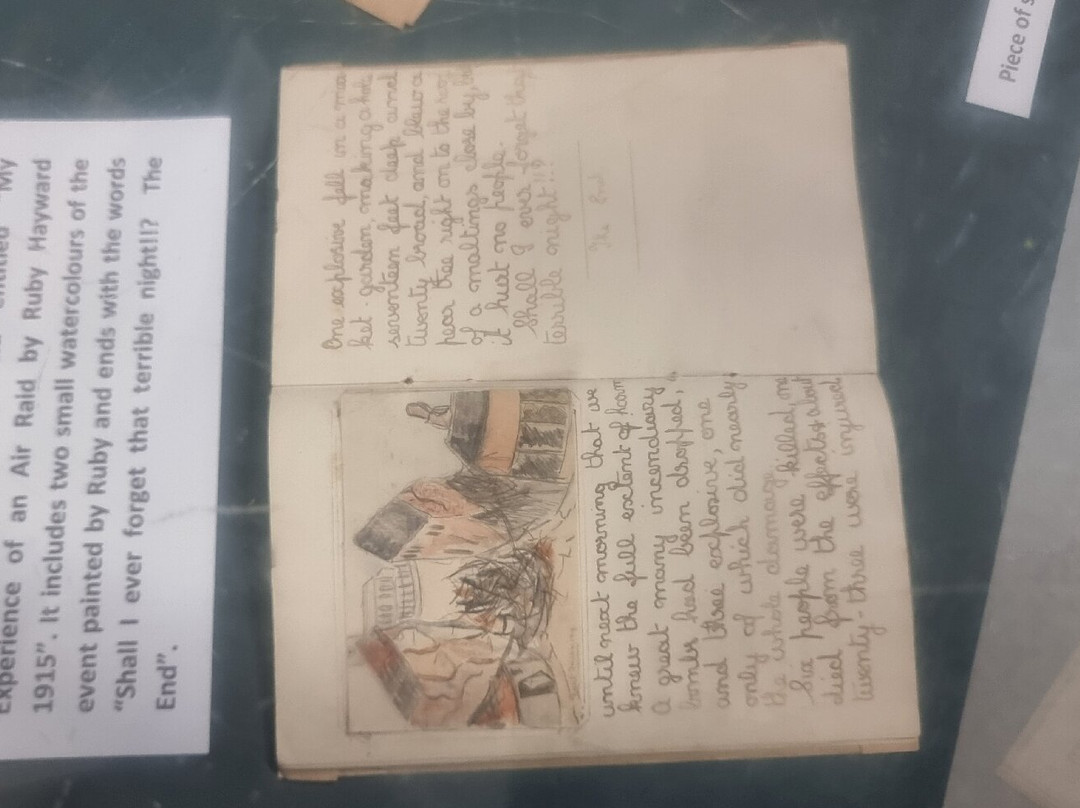 Experience of an Air Raid by Ruby Hayward
1915". It includes two small watercolours of the
event painted by Ruby and ends with the words
"Shall I ever forget that terrible night!!? The
End".
until next morning that we
knew the full extent of harm
A great many incendiary
bombs had been dropped,
and three explosive, one
only of which did nearly
the whole damage.
Six people were killed, one
died from the effects & about
twenty-three were injured
One explosive fell in a mar
ket-garden making a hole
seventeen feet deep and
twenty broad, and blew a
pear tree right on to the roof
of a maltings close by, but
it hurt no people.
Shall I ever forget that
terrible night!!?
The End
Piece of s